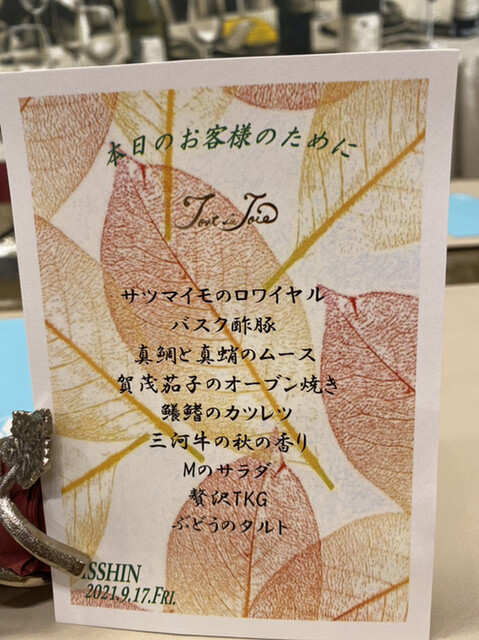 本日のお客様のために
サツマイモのロワイヤル
バスク酢豚
真鯛と真蛸のムース
賀茂茄子のオーブン焼き
鱶鰭のカツレツ
三河牛の秋の香り
Mのサラダ
贅沢TKG
ぶどうのタルト
ISSHIN
2021.9.17.FRI.